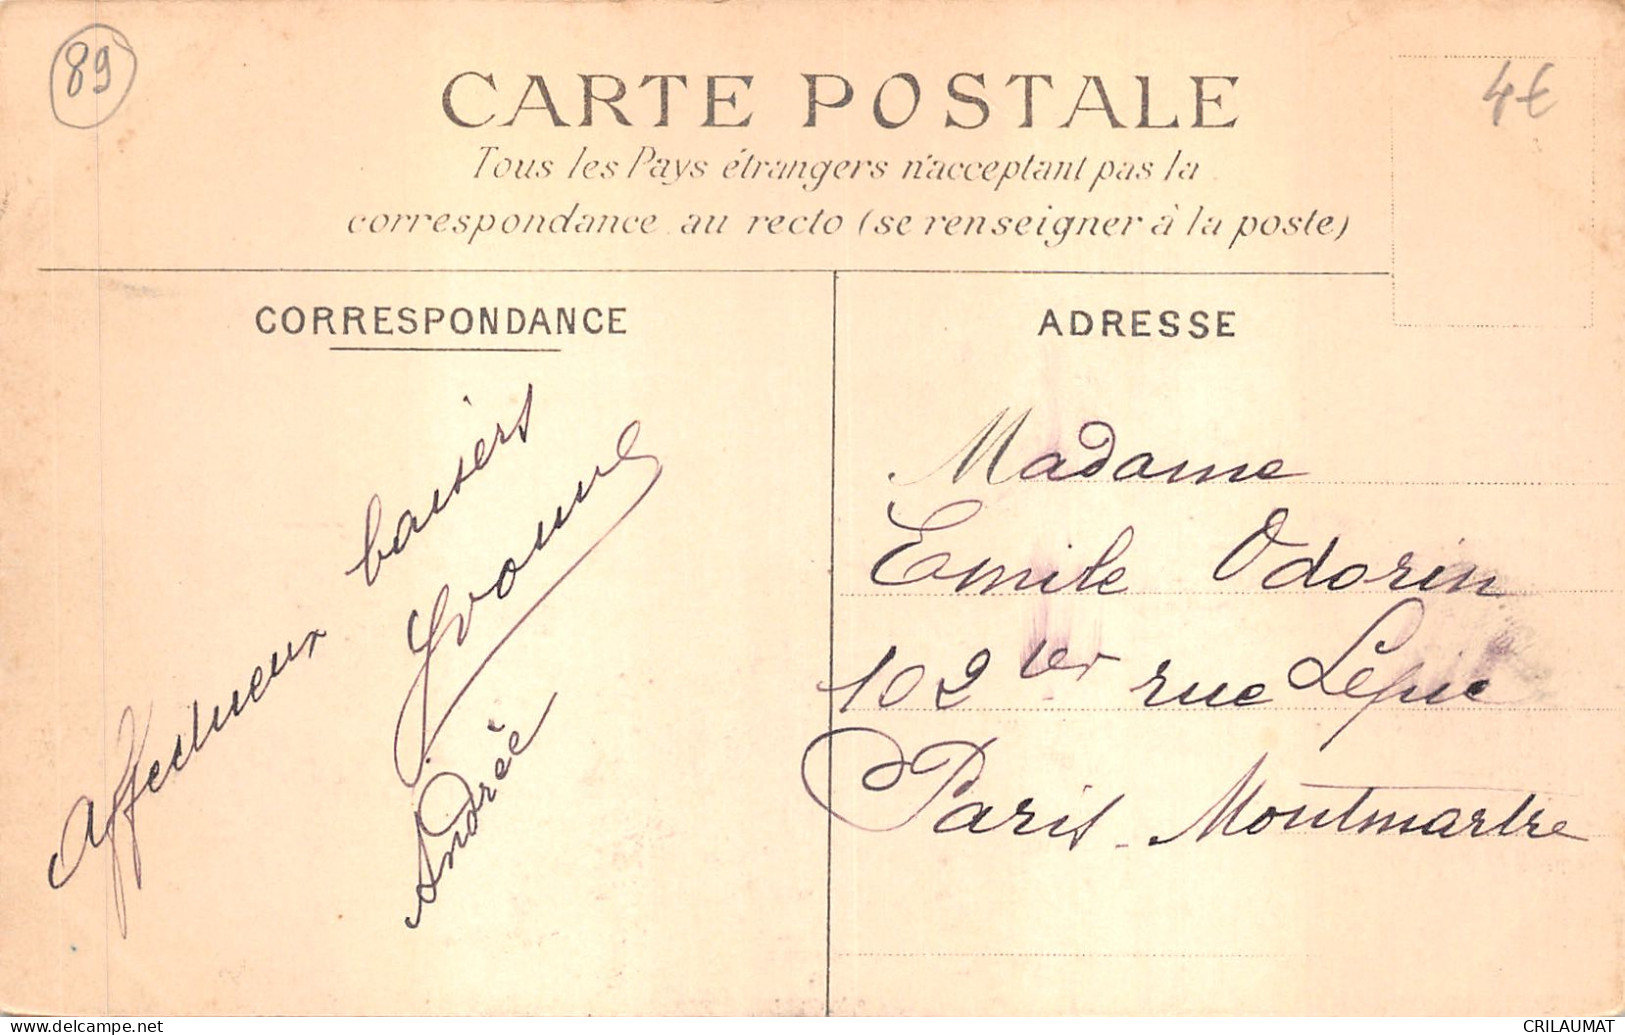 89
4€
CARTE POSTALE
Tous les Pays étrangers n'acceptant pas la
correspondance au recto (se renseigner à la poste)
CORRESPONDANCE
ADRESSE
Affectueux baisers
Yvonne
Andrée
Madame
Emile Odorin
102 rue Lepic
Paris - Montmartre
www.delcampe.net
CRILAUMAT